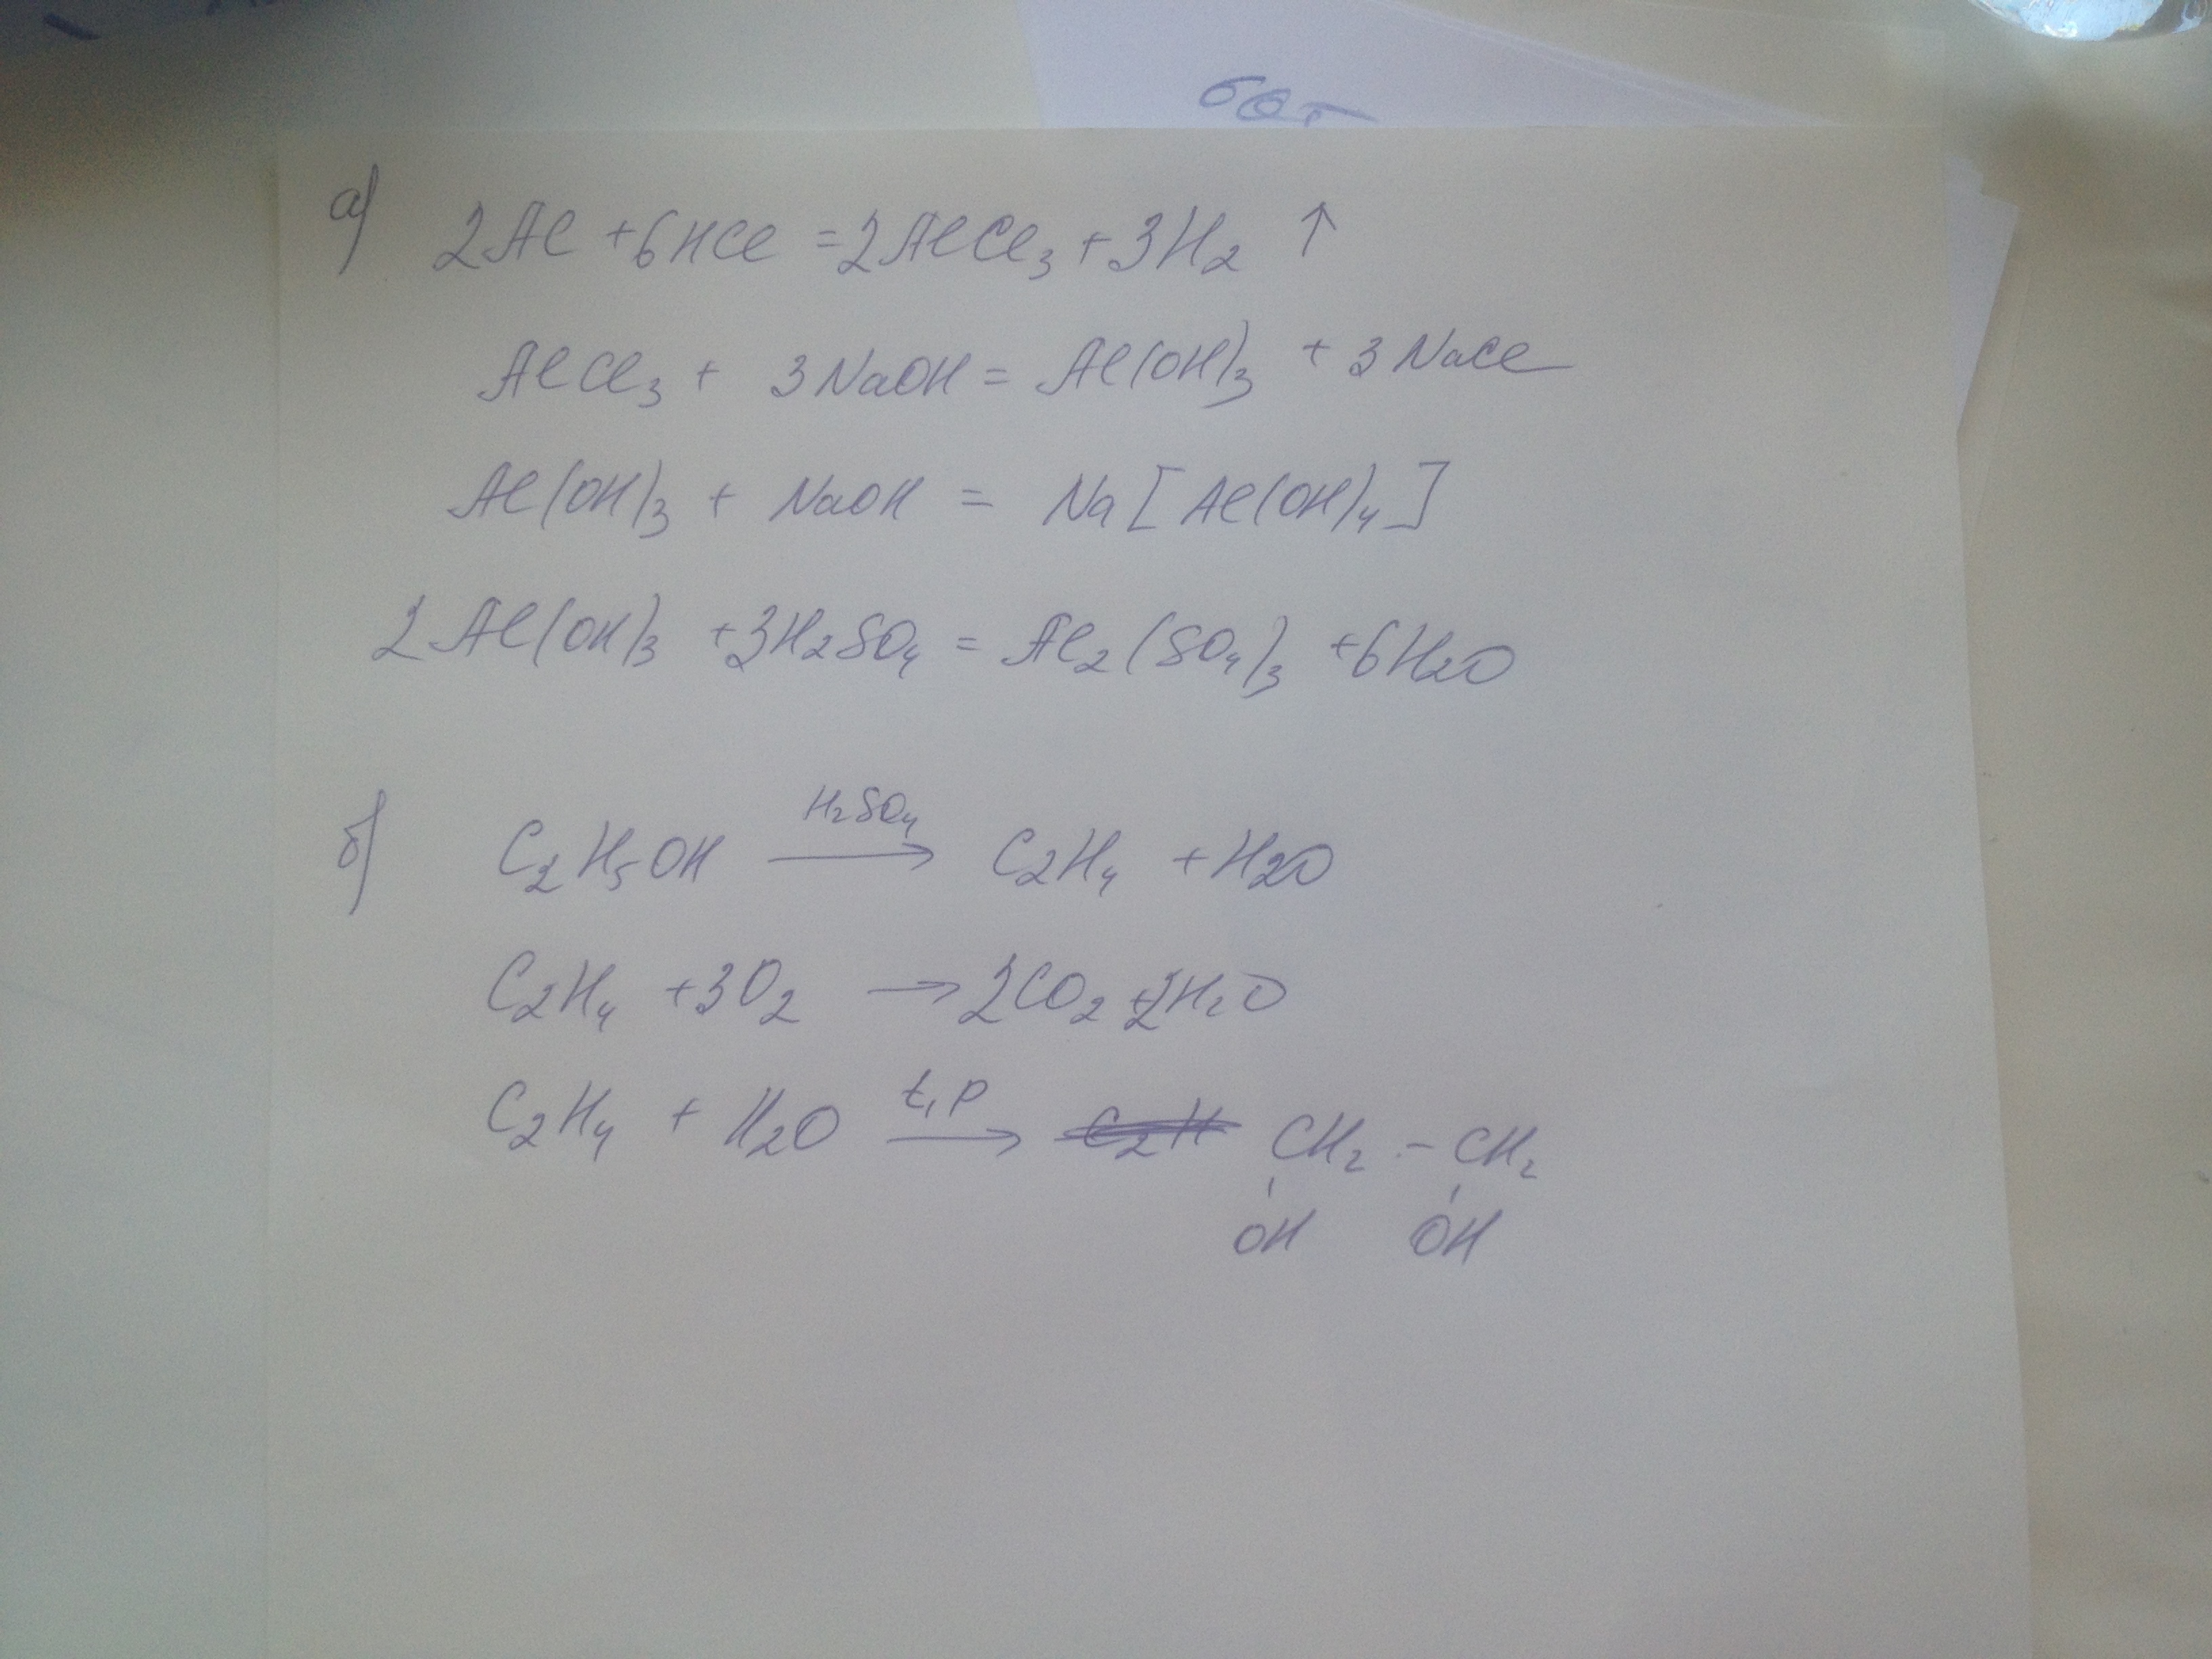 бот
а) 2Al + 6HCl = 2AlCl₃ + 3H₂ ↑
AlCl₃ + 3NaOH = Al(OH)₃ + 3NaCl
Al(OH)₃ + NaOH = Na[Al(OH)₄]
2Al(OH)₃ + 3H₂SO₄ = Al₂(SO₄)₃ + 6H₂O
H₂SO₄
б) C₂H₅OH → C₂H₄ + H₂O
C₂H₄ + 3O₂ → 2CO₂ + 2H₂O
t, p
C₂H₄ + H₂O → C₂H CH₂ - CH₂
OH OH